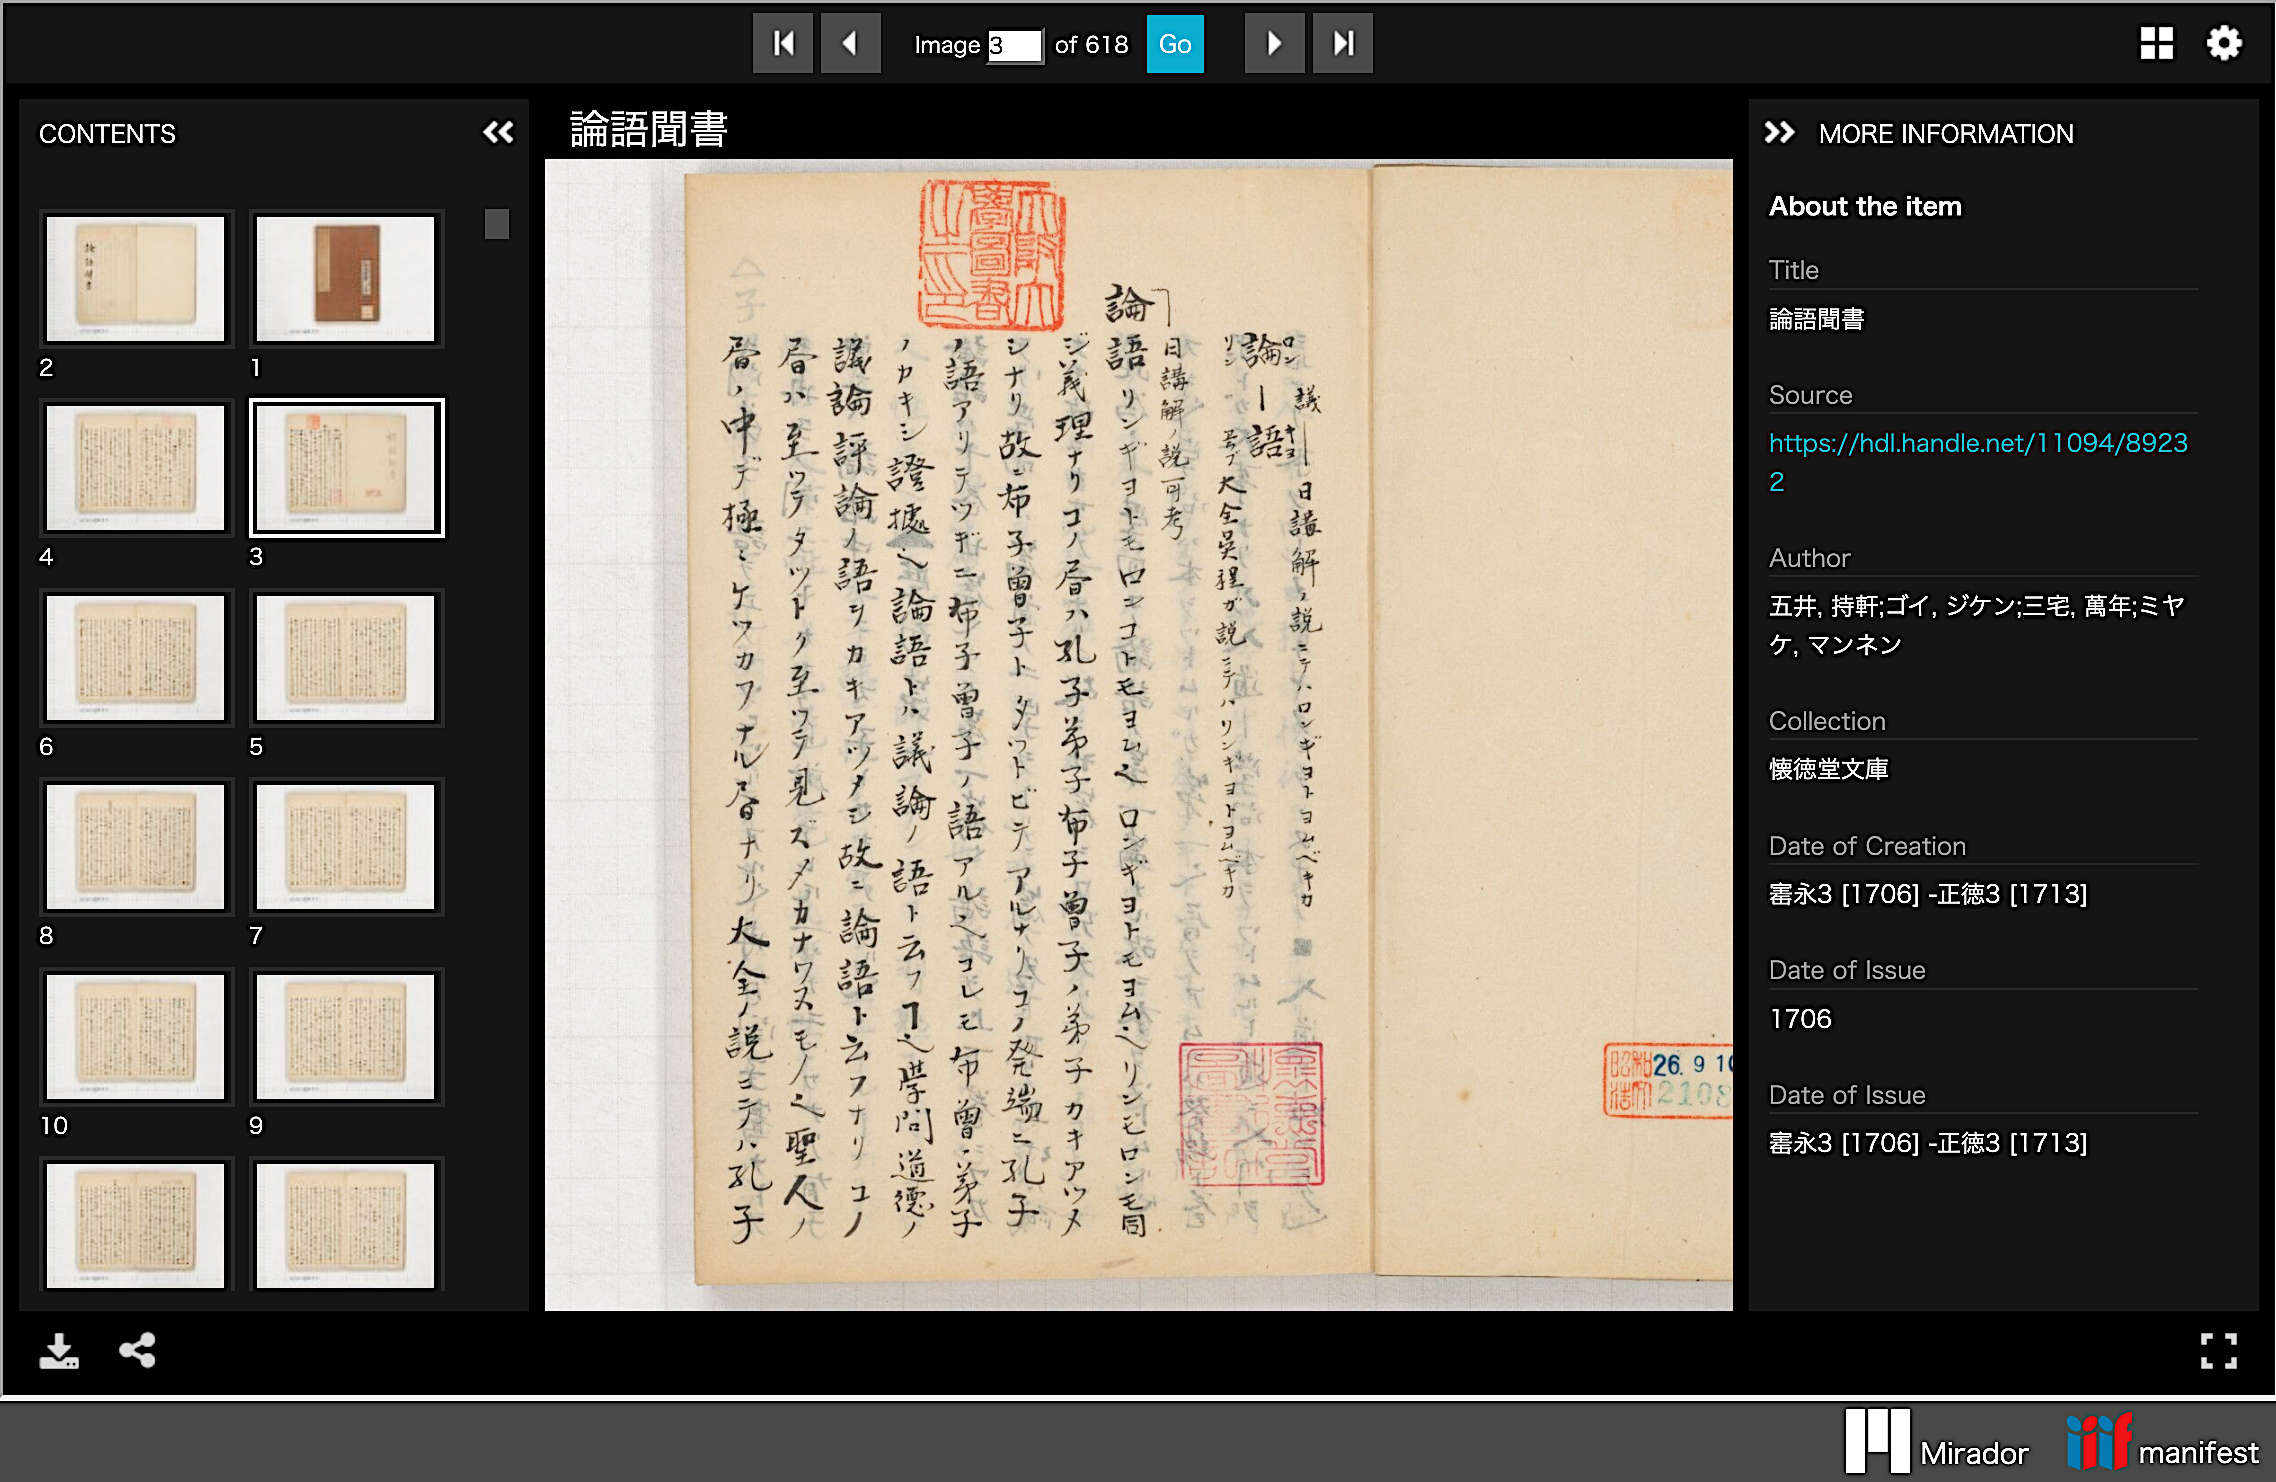 Image 3 of 618 Go
CONTENTS
2
1
4
3
6
5
8
7
10
9
論語聞書
議 日講解ノ説ニテハロンギヨトヨムベキカ
ロン
論ー語
リン
呉ブ大全呉程ガ説ニテハリンギヨトヨムベキカ
日講解ノ説可考
論語リンギヨトモロンコトモヨムヘロンギヨトモヨムヘリンモロンモ同
ジ義理ナリコノ層ハ孔子弟子布子曽子ノ弟子カキアツメ
シナリ故ニ布子曽子トタツトビテアルナリコノ発端ニ孔子
ノ語アリテツギニ布子曽子ノ語アルヘコレモ布曽ノ弟子
ノカキシ證據ヘ論語トハ議論ノ語ト云フヿヘ学問道徳ノ
議論評論ノ語ヲカキアツメシ故ニ論語ト云フナリコノ
層ハ至ツテタツトク至ツテ見ズメカナワヌモノヘ聖人ノ
層ノ中デ極ミケツカフナル層ナリ大全ノ説ニテハ孔子
昭和26.9.10
2108
MORE INFORMATION
About the item
Title
論語聞書
Source
https://hdl.handle.net/11094/8923
2
Author
五井, 持軒;ゴイ, ジケン;三宅, 萬年;ミヤ
ケ, マンネン
Collection
懐徳堂文庫
Date of Creation
寚永3 [1706] -正徳3 [1713]
Date of Issue
1706
Date of Issue
寚永3 [1706] -正徳3 [1713]
Mirador
iiif manifest